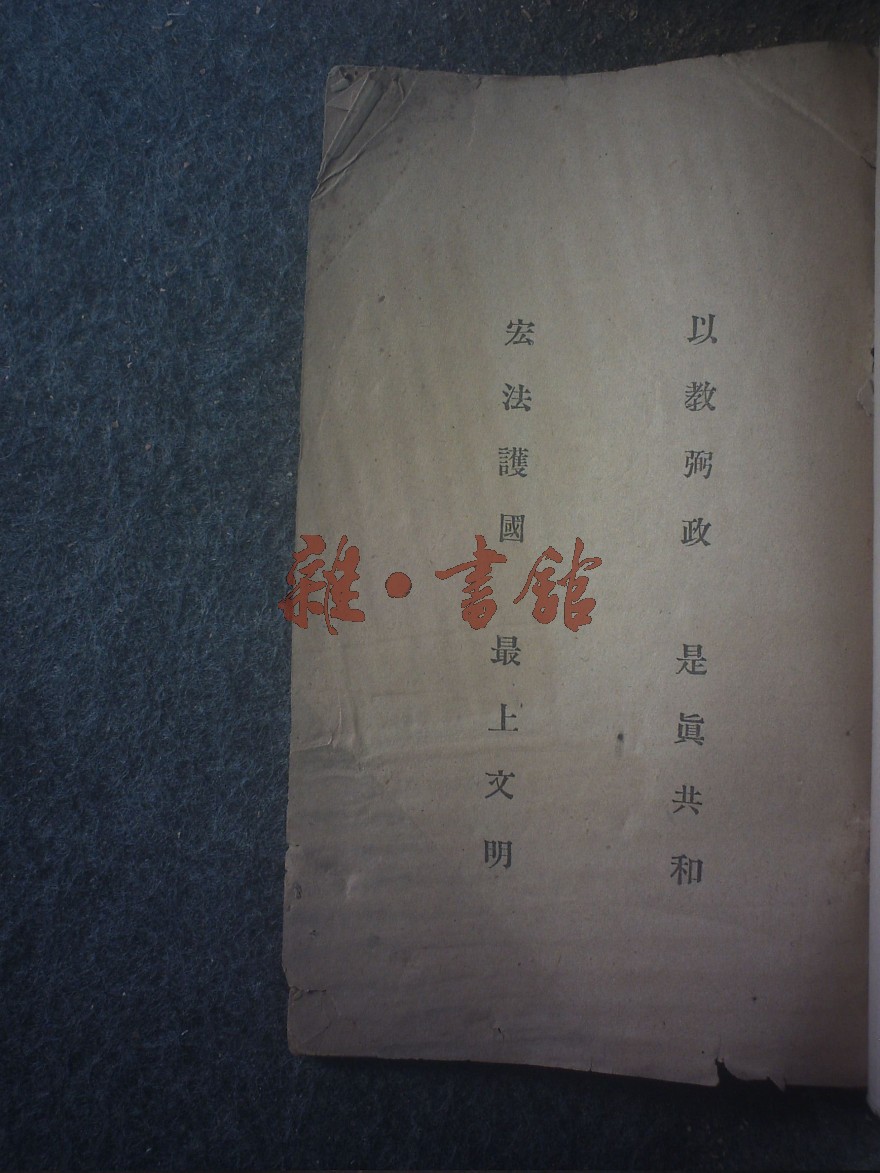 以教弼政　是眞共和
宏法護國　最上文明
雜·書館